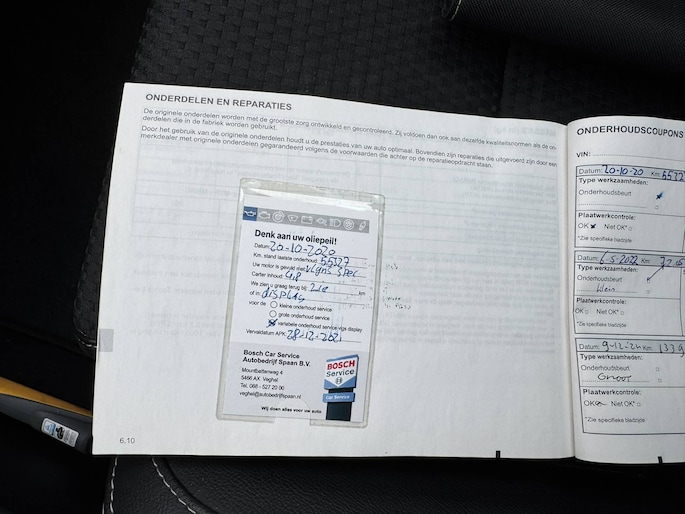 ONDERDELEN EN REPARATIES
De originele onderdelen worden met de grootste zorg ontwikkeld en gecontroleerd. Zij voldoen dan ook aan dezelfde kwaliteitsnormen als de on-
derdelen die in de fabriek worden gebruikt.
Door het gebruik van de originele onderdelen houdt u de prestaties van uw auto optimaal. Bovendien zijn reparaties die uitgevoerd zijn door een
merkdealer met originele onderdelen gegarandeerd volgens de voorwaarden die achter op de reparatieopdracht staan.
Denk aan uw oliepeil!
Datum: 20-10-2020
Km. stand laatste onderhoud: 55327
Uw motor is gevuld met: vlgns spec
Carter inhoud: 4,8
We zien u graag terug bij: zie km
of in: display
voor de
kleine onderhoud service
grote onderhoud service
variabele onderhoud service vlgs display
Vervaldatum APK: 28-12-2021
Bosch Car Service
Autobedrijf Spaan B.V.
Mountbattenweg 4
5466 AX Veghel
Tel. 088 - 527 20 00
veghel@autobedrijfspaan.nl
BOSCH
Service
Car Service
Wij doen alles voor uw auto
6.10
ONDERHOUDSCOUPONS
VIN:
Datum: 20-10-20 Km:
Type werkzaamheden:
Onderhoudsbeurt
Plaatwerkcontrole:
OK Niet OK*
*Zie specifieke bladzijde
Datum: 6-5-2022 Km:
Type werkzaamheden:
Onderhoudsbeurt
klein
Plaatwerkcontrole:
OK Niet OK*
*Zie specifieke bladzijde
Datum: 9-12-24 Km:
Type werkzaamheden:
Onderhoudsbeurt
Groot
Plaatwerkcontrole:
OK Niet OK*
*Zie specifieke bladzijde